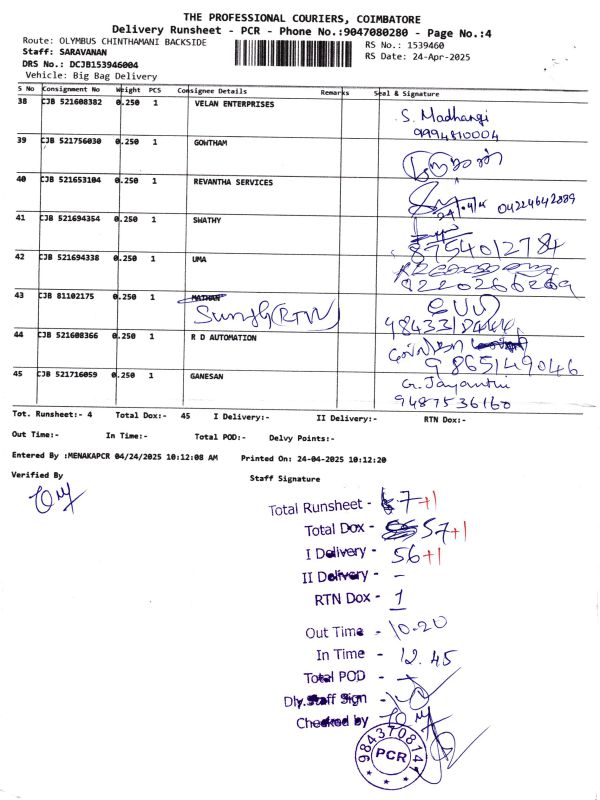 THE PROFESSIONAL COURIERS, COIMBATORE
Delivery Runsheet - PCR - Phone No.:9047080280 - Page No.:4
Route: OLYMBUS CHINTHAMANI BACKSIDE
RS No.: 1539460
Staff: SARAVANAN
RS Date: 24-Apr-2025
DRS No.: DCJB153946004
Vehicle: Big Bag Delivery
S No Consignment No Weight PCS Consignee Details Remarks Seal & Signature
38 CJB 521608382 0.250 1 VELAN ENTERPRISES
S. Madhangi
9994810004
39 CJB 521756030 0.250 1 GOWTHAM
40 CJB 521653104 0.250 1 REVANTHA SERVICES
04224642889
41 CJB 521694354 0.250 1 SWATHY
8754012784
42 CJB 521694338 0.250 1 UMA
9220266269
43 CJB 81102175 0.250 1 MATHAN
44 CJB 521608366 0.250 1 R D AUTOMATION
9865149046
45 CJB 521716059 0.250 1 GANESAN
G. Jayanthi
9487536160
Tot. Runsheet:- 4 Total Dox:- 45 I Delivery:- II Delivery:- RTN Dox:-
Out Time:- In Time:- Total POD:- Delvy Points:-
Entered By :MENAKAPCR 04/24/2025 10:12:08 AM Printed On: 24-04-2025 10:12:20
Verified By Staff Signature
Total Runsheet - 7+1
Total Dox - 57+1
I Delivery - 56+1
II Delivery - –
RTN Dox - 1
Out Time - 10.20
In Time - 12.45
Total POD -
Dly.Staff Sign -
Checked by
9843708141
PCR